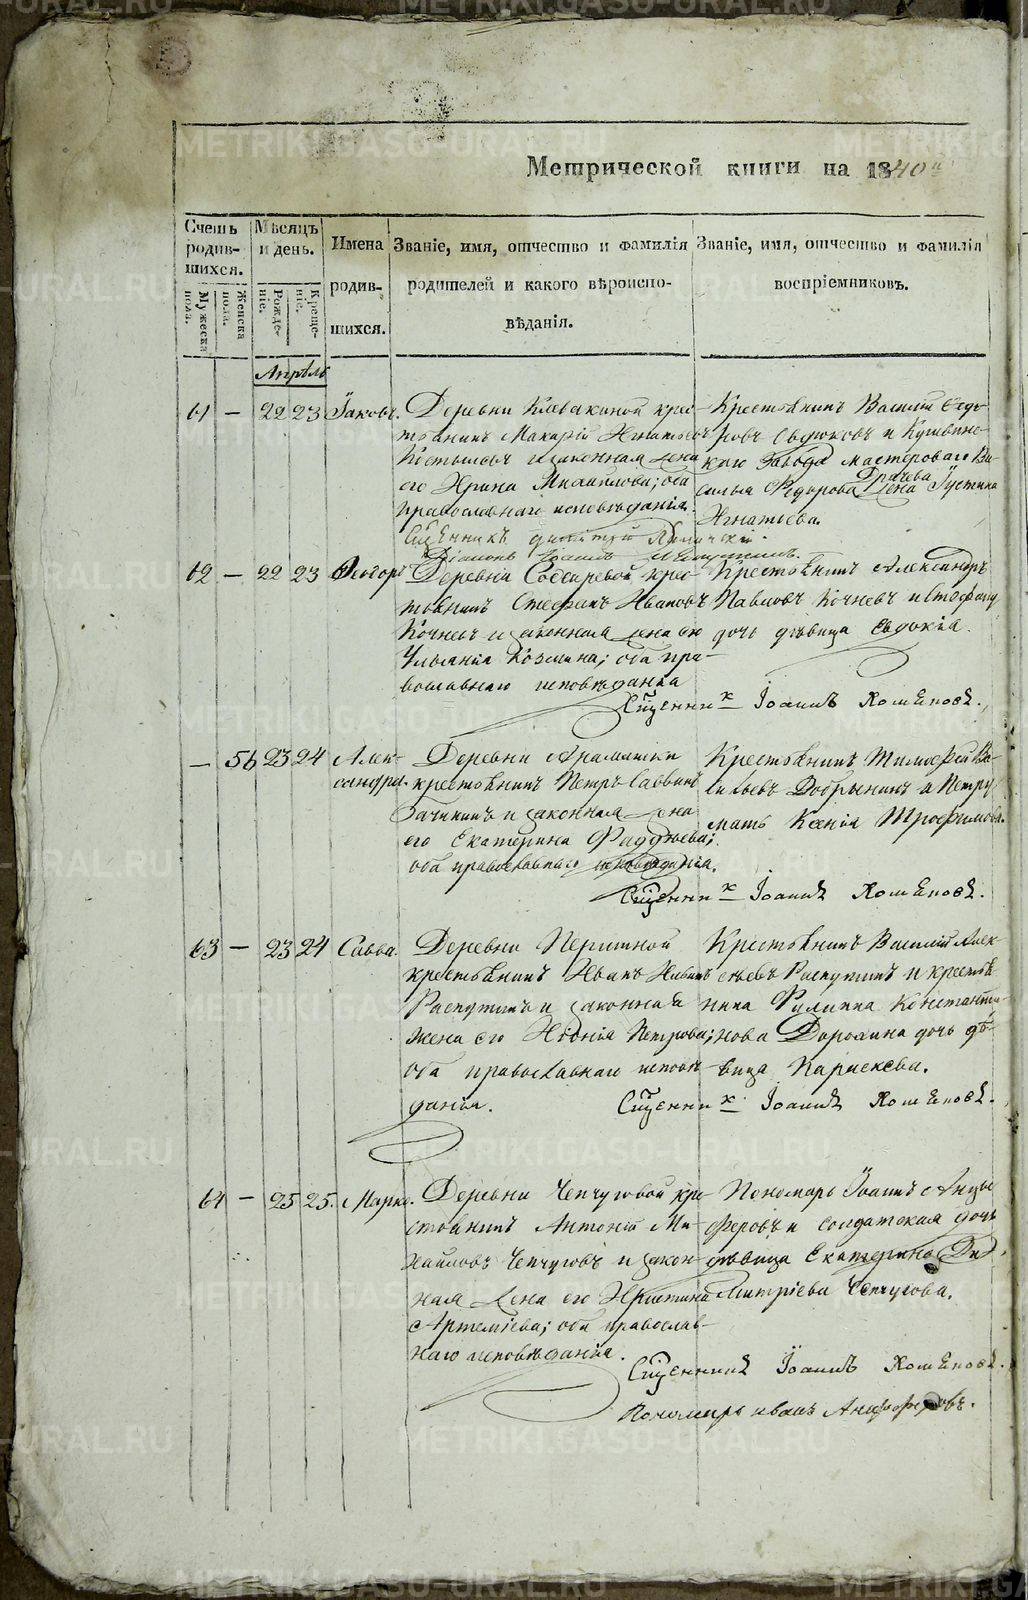 METRIKI.GASO-URAL.RU
Метрической книги на 1840й
Счетъ родившихся.
Мужеска пола.
Женска пола.
Мѣсяцъ и день.
Рождение.
Крещение.
Имена родившихся.
Званіе, имя, отчество и фамилія родителей и какого вѣроисповѣданія.
Званіе, имя, отчество и фамилія воспріемниковъ.
Апрѣль
61 – 22 23 Іаковъ.
Деревни Клевакиной крес-
тьянинъ Макарій Игнатьевъ
и законная жена
его Ирина Михайлова; оба
православнаго исповѣданія.
Крестьянинъ Василій Федо-
ровъ и Кушвинс-
каго Завода мастероваго Ва-
силья Федорова Грачева жена Іустина
Игнатьева.
Сщенникъ Димитрій
Діаконъ Іоаннъ
62 – 22 23 Ѳеодоръ
Деревни крес-
тьянинъ Стефанъ Ивановъ
Кочневъ и законная жена его
Ульянія Козмина; оба пра-
вославнаго исповѣданія
Крестьянинъ Александръ
Павловъ Кочневъ и Стефану
дочь дѣвица Евдокія.
Сщенникъ Іоаннъ
– 56 23 24 Алек-
сандра.
Деревни Арамашки
крестьянинъ Петръ Саввинъ
и законная жена
его Екатерина Фаддѣева;
оба православнаго исповѣданія.
Крестьянинъ Тимофей Ва-
сильевъ Добрынинъ и Петру
мать Ксенія Трофимова.
Сщенникъ Іоаннъ
63 – 23 24 Савва.
Деревни Першиной
крестьянинъ Иванъ Ивановъ
Распутинъ и законная
жена его Петрова;
оба православнаго исповѣ-
данія.
Крестьянинъ Василій Алек-
сѣевъ Распутинъ и крестья-
нина Филиппа Константи-
нова Дорохина дочь дѣ-
вица
Сщенникъ Іоаннъ
64 – 25 25. Марко.
Деревни Чепчуговой кре-
стьянинъ Антоній Ми-
хайловъ Чепчуговъ и закон-
ная жена его Христина
Артеміева; оба православ-
наго исповѣданія.
Пономарь Іоаннъ Анцы-
феровъ и солдатская дочь
дѣвица Екатерина Ди-
митріева Чепчугова.
Сщенникъ Іоаннъ
Пономарь Иванъ Анцыферовъ.